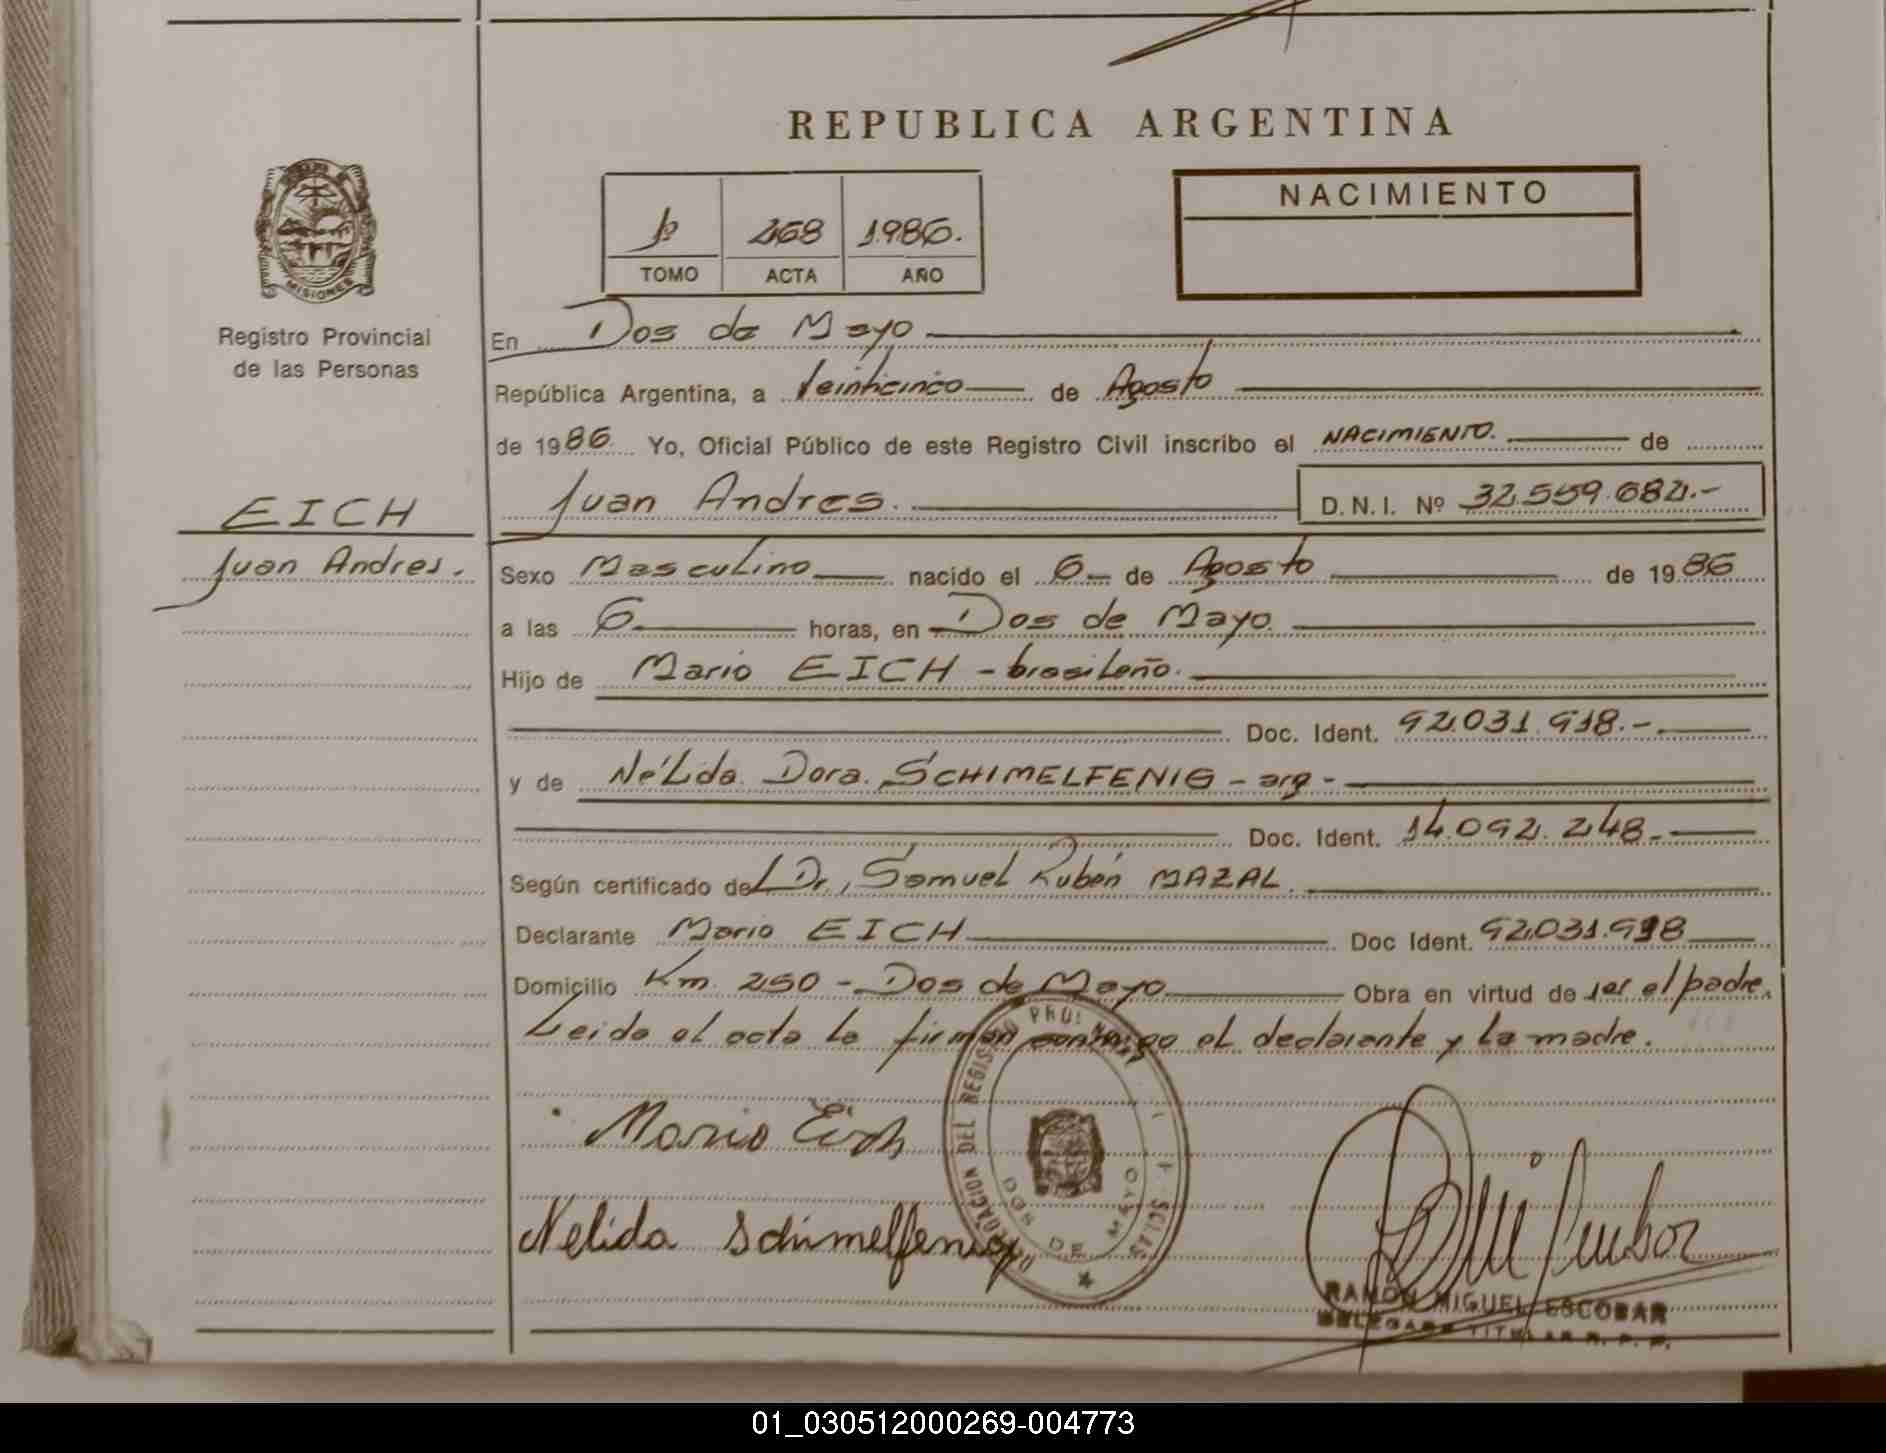 REPUBLICA ARGENTINA
NACIMIENTO
1º 268 1986.
TOMO ACTA AÑO
MISIONES
Registro Provincial
de las Personas
En Dos de Mayo
República Argentina, a Veinticinco de Agosto
de 1986 Yo, Oficial Público de este Registro Civil inscribo el NACIMIENTO. de
EICH
Juan Andres.
Juan Andres. D.N.I. Nº 32.559.682.-
Sexo Masculino nacido el 6 de Agosto de 1986
a las 6 horas, en Dos de Mayo.
Hijo de Mario EICH - brasileño.
Doc. Ident. 92.031.918.-
y de Nélida Dora SCHIMELFENIG - arg -
Doc. Ident. 14.092.248.-
Según certificado del Dr, Samuel Rubén MAZAL.
Declarante Mario EICH Doc Ident. 92.031.918
Domicilio Km. 250 - Dos de Mayo Obra en virtud de ser el padre.
Leida el acta la firman conmigo el declarante y la madre.
Mario Eich
Nelida Schimelfenig
DOS DE MAYO
RAMON MIGUEL ESCOBAR
DELEGADO TITULAR R. P. P.
01_030512000269-004773